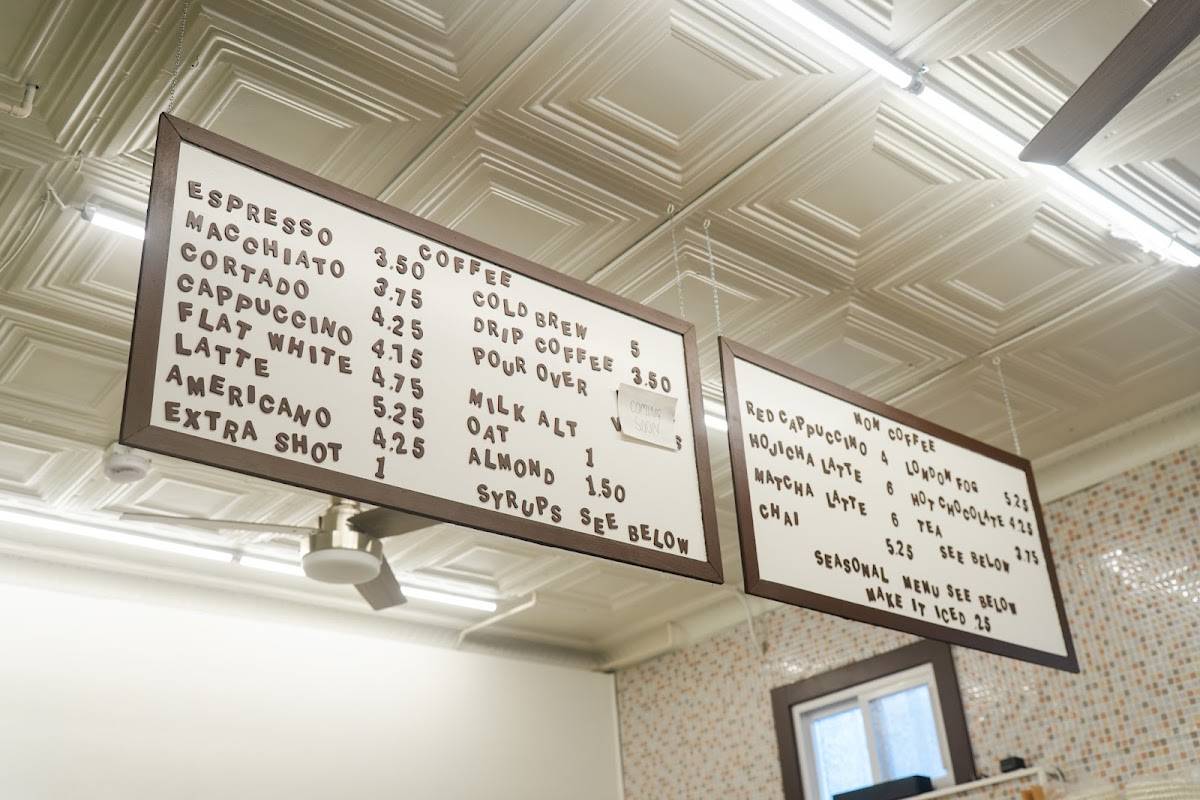 COFFEE
ESPRESSO 3.50
MACCHIATO 3.75
CORTADO 4.25
CAPPUCCINO 4.15
FLAT WHITE 4.75
LATTE 5.25
AMERICANO 4.25
EXTRA SHOT 1
COLD BREW 5
DRIP COFFEE 3.50
POUR OVER
COMING
SOON
MILK ALT
OAT 1
ALMOND 1.50
SYRUPS SEE BELOW
NON COFFEE
RED CAPPUCCINO 4
HOJICHA LATTE 6
MATCHA LATTE 6
CHAI 5.25
LONDON FOG 5.25
HOT CHOCOLATE 4.25
TEA 3.75
SEE BELOW
SEASONAL MENU SEE BELOW
MAKE IT ICED .25